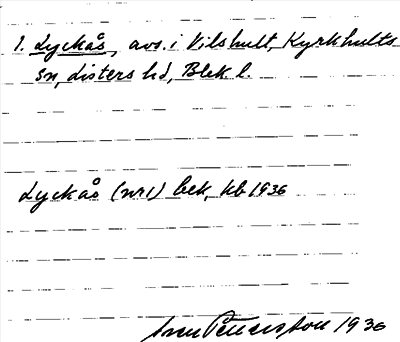 1. Lyckås, avs. i Vilshult, Kyrkhults
sn, Listers hd, Blek. l.
Lyckås (nr1) bek, kb 1936
1936